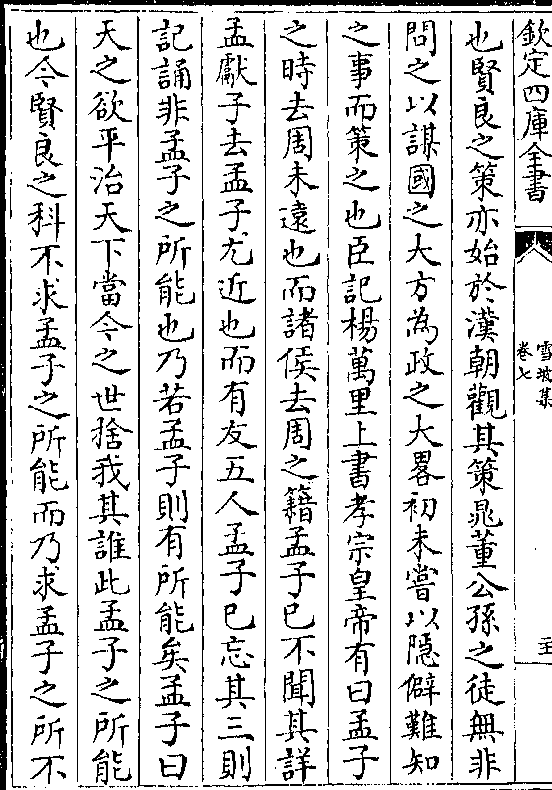 欽定四庫全書
雪坡集
卷七
也賢良之策亦始於漢朝觀其策晁董公孫之徒無非
問之以謀國之大方為政之大畧初未嘗以隱僻難知
之事而策之也臣記楊萬里上書孝宗皇帝有曰孟子
之時去周未遠也而諸侯去周之籍孟子已不聞其詳
孟獻子去孟子尤近也而有友五人孟子已忘其三則
記誦非孟子之所能也乃若孟子則有所能矣孟子曰
天之欲平治天下當今之世捨我其誰此孟子之所能
也今賢良之科不求孟子之所能而乃求孟子之所不